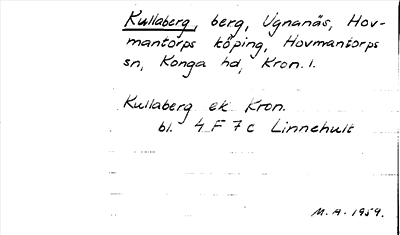 Kullaberg, berg, Ugnanäs, Hov-
mantorps köping, Hovmantorps
sn, Konga hd, Kron. l.
Kullaberg ek Kron.
bl. 4 F 7 c Linnehult
M. A. 1959.